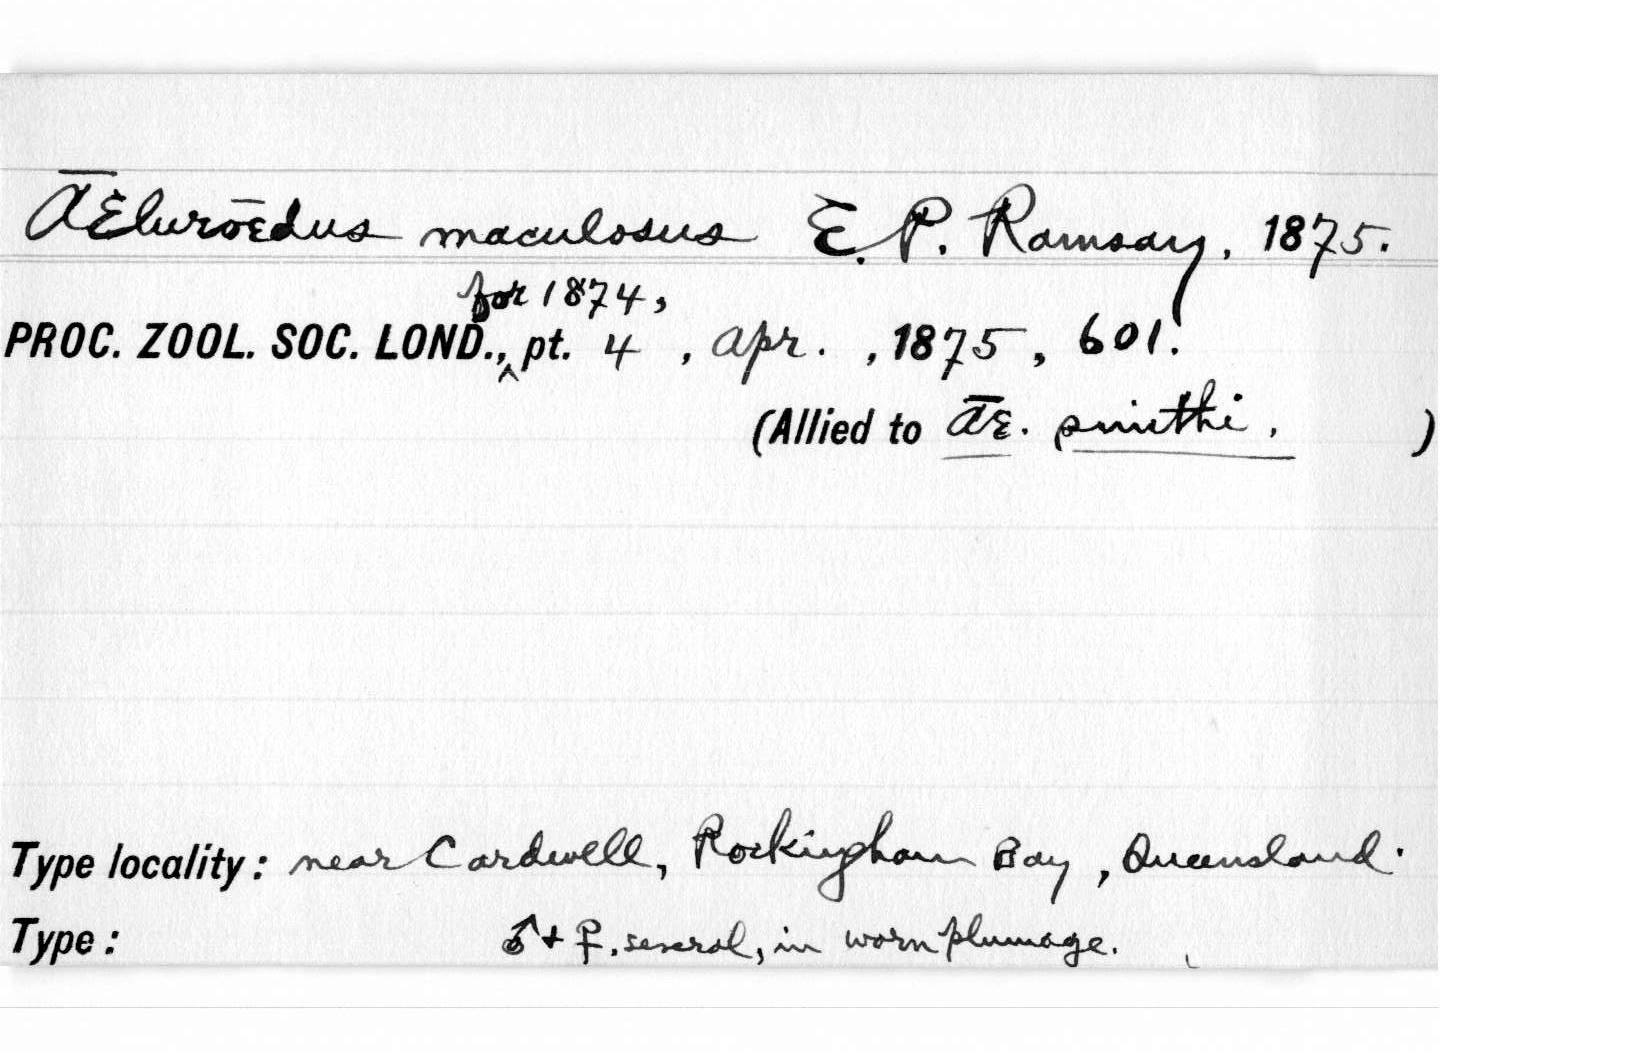 ĀĒlurōēdus maculosus E. P. Ramsay, 1875.
for 1874,
PROC. ZOOL. SOC. LOND.,‸ pt. 4 , Apr. , 1875 , 601.
(Allied to ĀĒ. smithi. )
Type locality: near Cardwell, Rockingham Bay, Queensland.
Type: ♂ + ♀, several, in worn plumage.